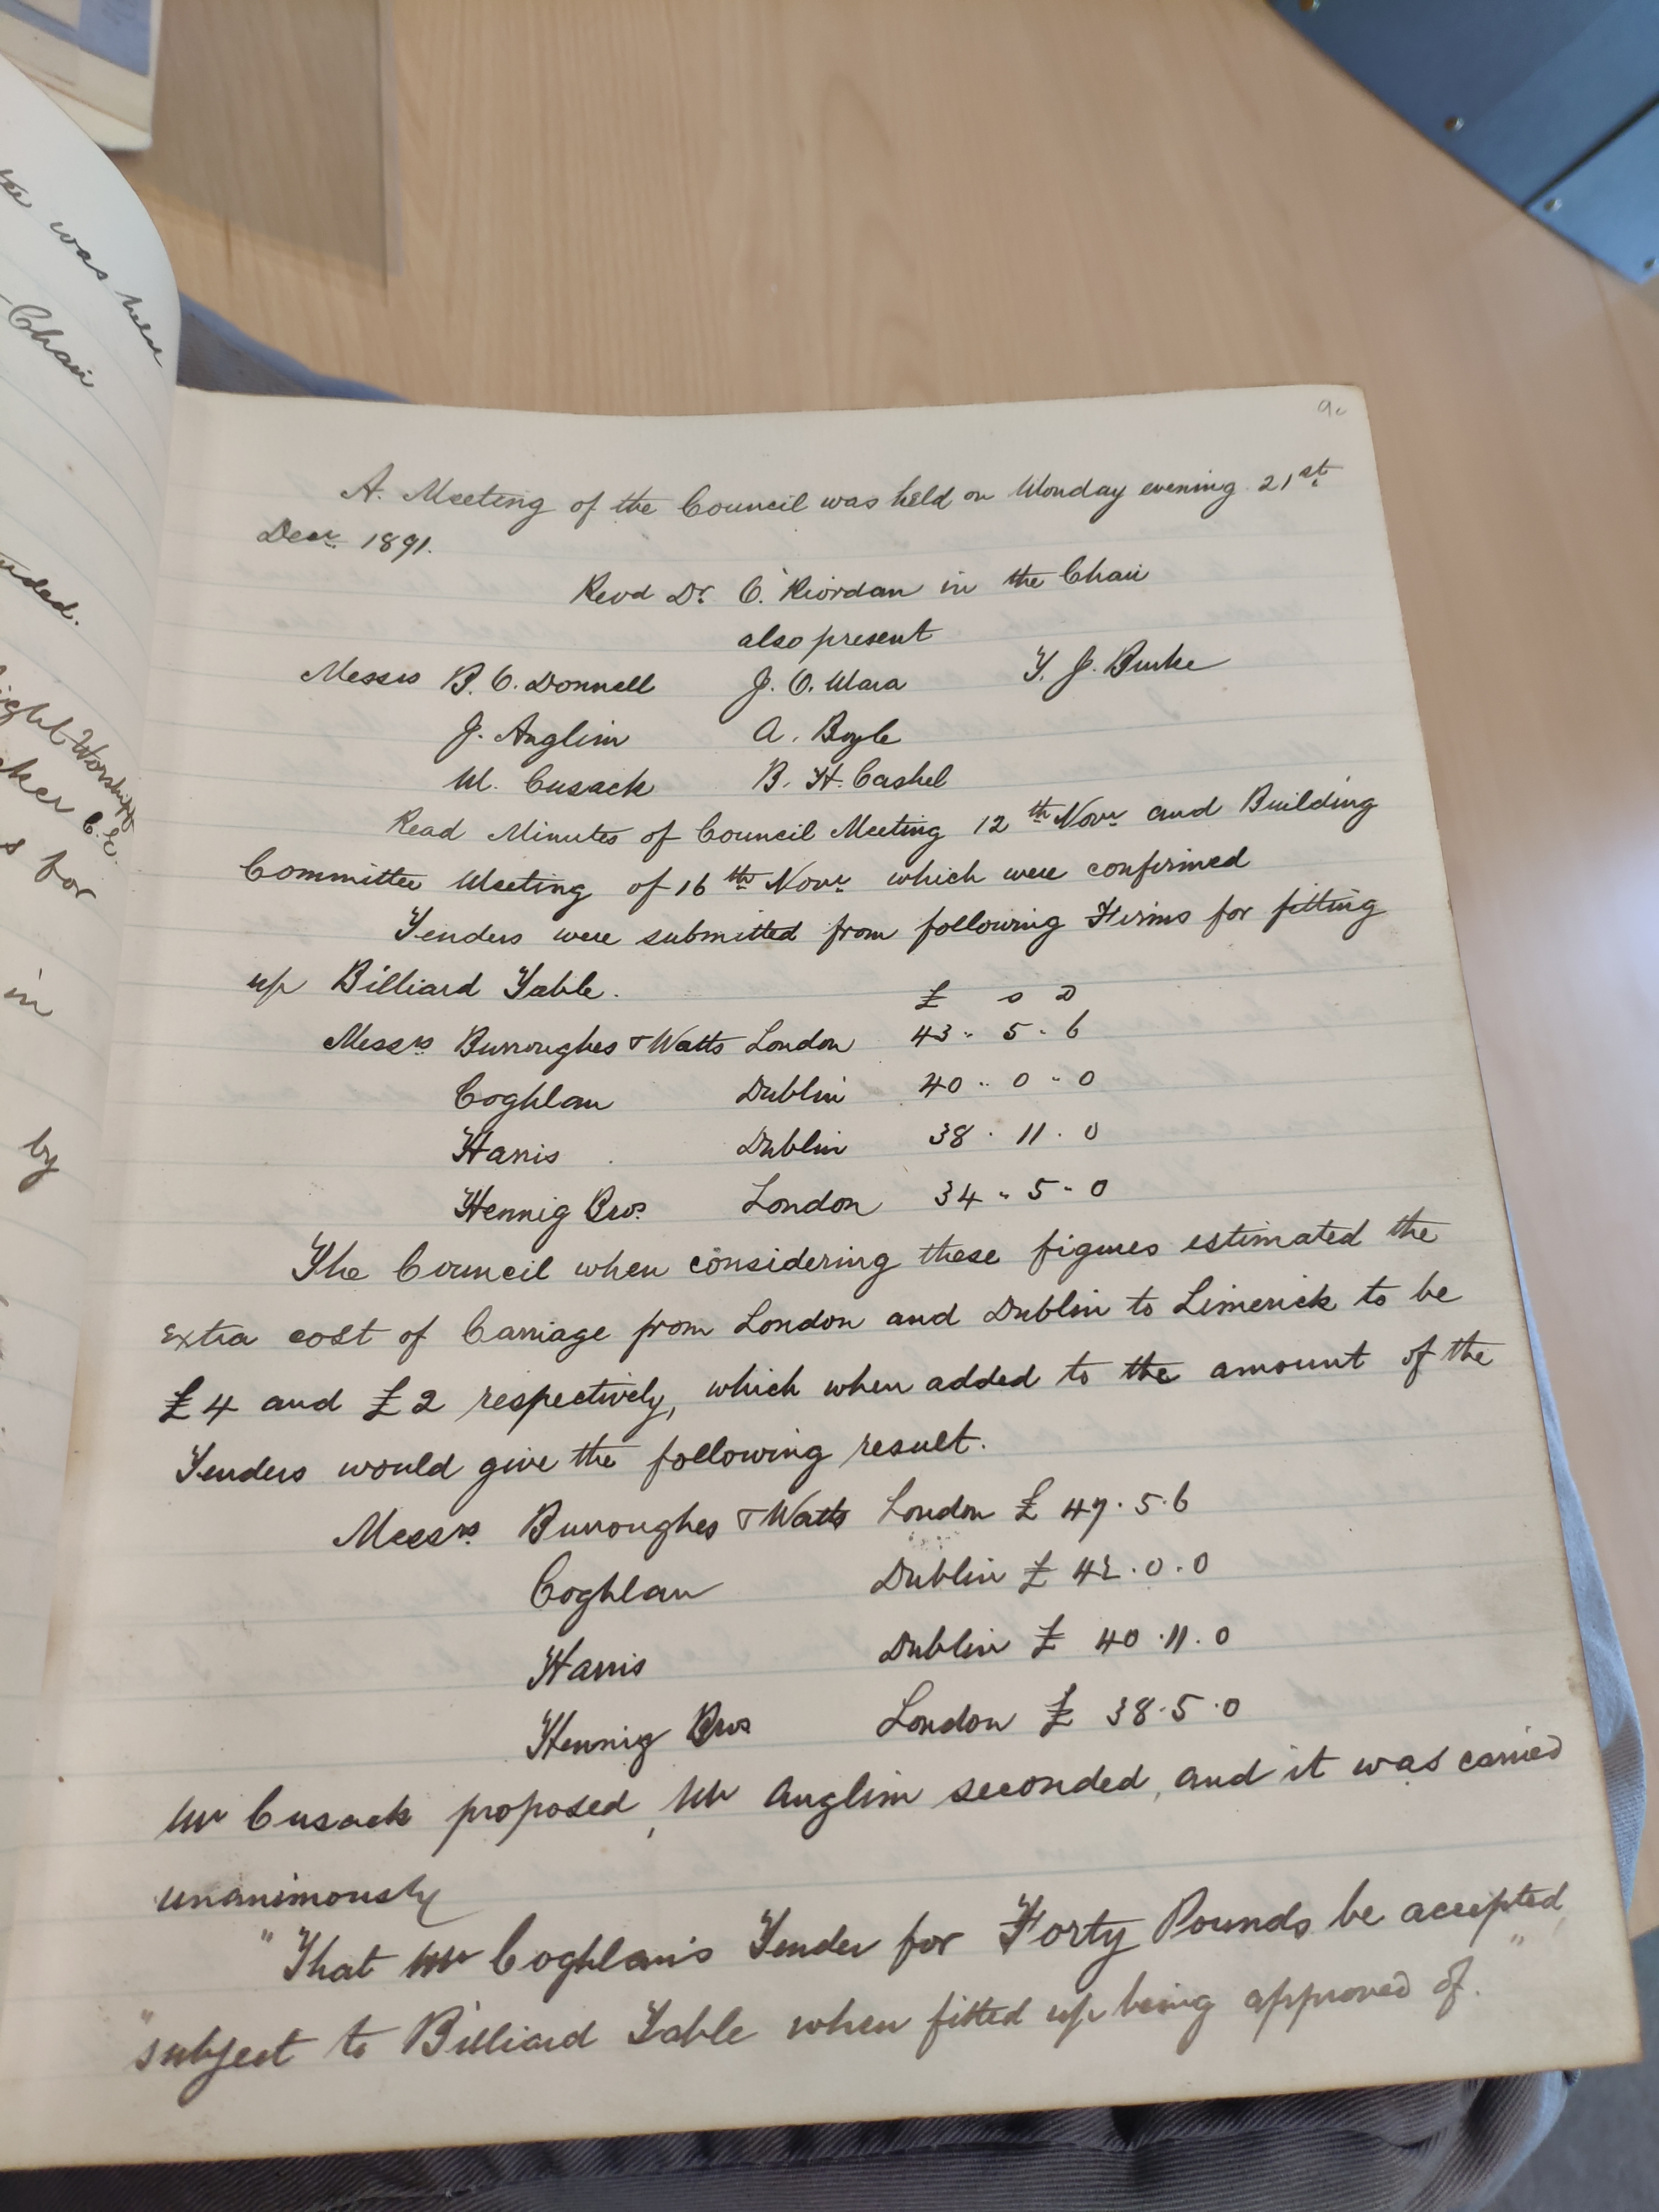 was held
Chair
by
in
s for
90
A. Meeting of the Council was held on Monday evening 21st
Decr. 1891.
Revd Dr. O'Riordan in the Chair
also present
Messrs B. O. Donnell J. O. Mara T. J. Burke
J. Anglim A. Boyle
M. Cusack B. H. Cashel
Read Minutes of Council Meeting 12th Novr. and Building
Committee Meeting of 16th Novr. which were confirmed
Tenders were submitted from following Firms for fitting
up Billiard Table.
£ s D
Messrs Burroughes & Watts London 43 " 5 " 6
Coghlan Dublin 40 " 0 " 0
Harris Dublin 38 . 11 . 0
Hennig Bros. London 34 " 5 " 0
The Council when considering these figures estimated the
extra cost of Carriage from London and Dublin to Limerick to be
£4 and £2 respectively, which when added to the amount of the
Tenders would give the following result.
Messrs. Burroughes & Watts London £ 47 . 5 . 6
Coghlan Dublin £ 42 . 0 . 0
Harris Dublin £ 40 . 11 . 0
Hennig Bros London £ 38 . 5 . 0
Mr Cusack proposed, Mr Anglim seconded, and it was carried
unanimously
"That Mr Coghlan's Tender for Forty Pounds be accepted
"subject to Billiard Table when fitted up being approved of."